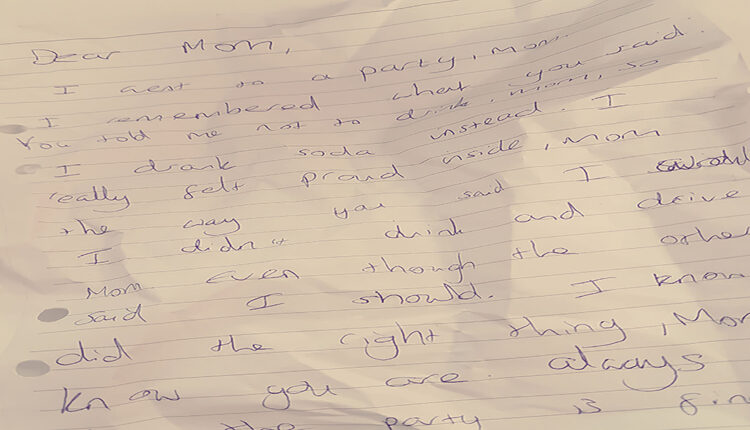 Dear Mom,
I went to a party, Mom.
I remembered what you said.
You told me not to drink, mom, so
I drank soda instead. I
really felt proud inside, Mom
the way you said I would
I didn't drink and drive
Mom even though the other
said I should. I know
did the right thing, Mom
Know you are always
the party is fin